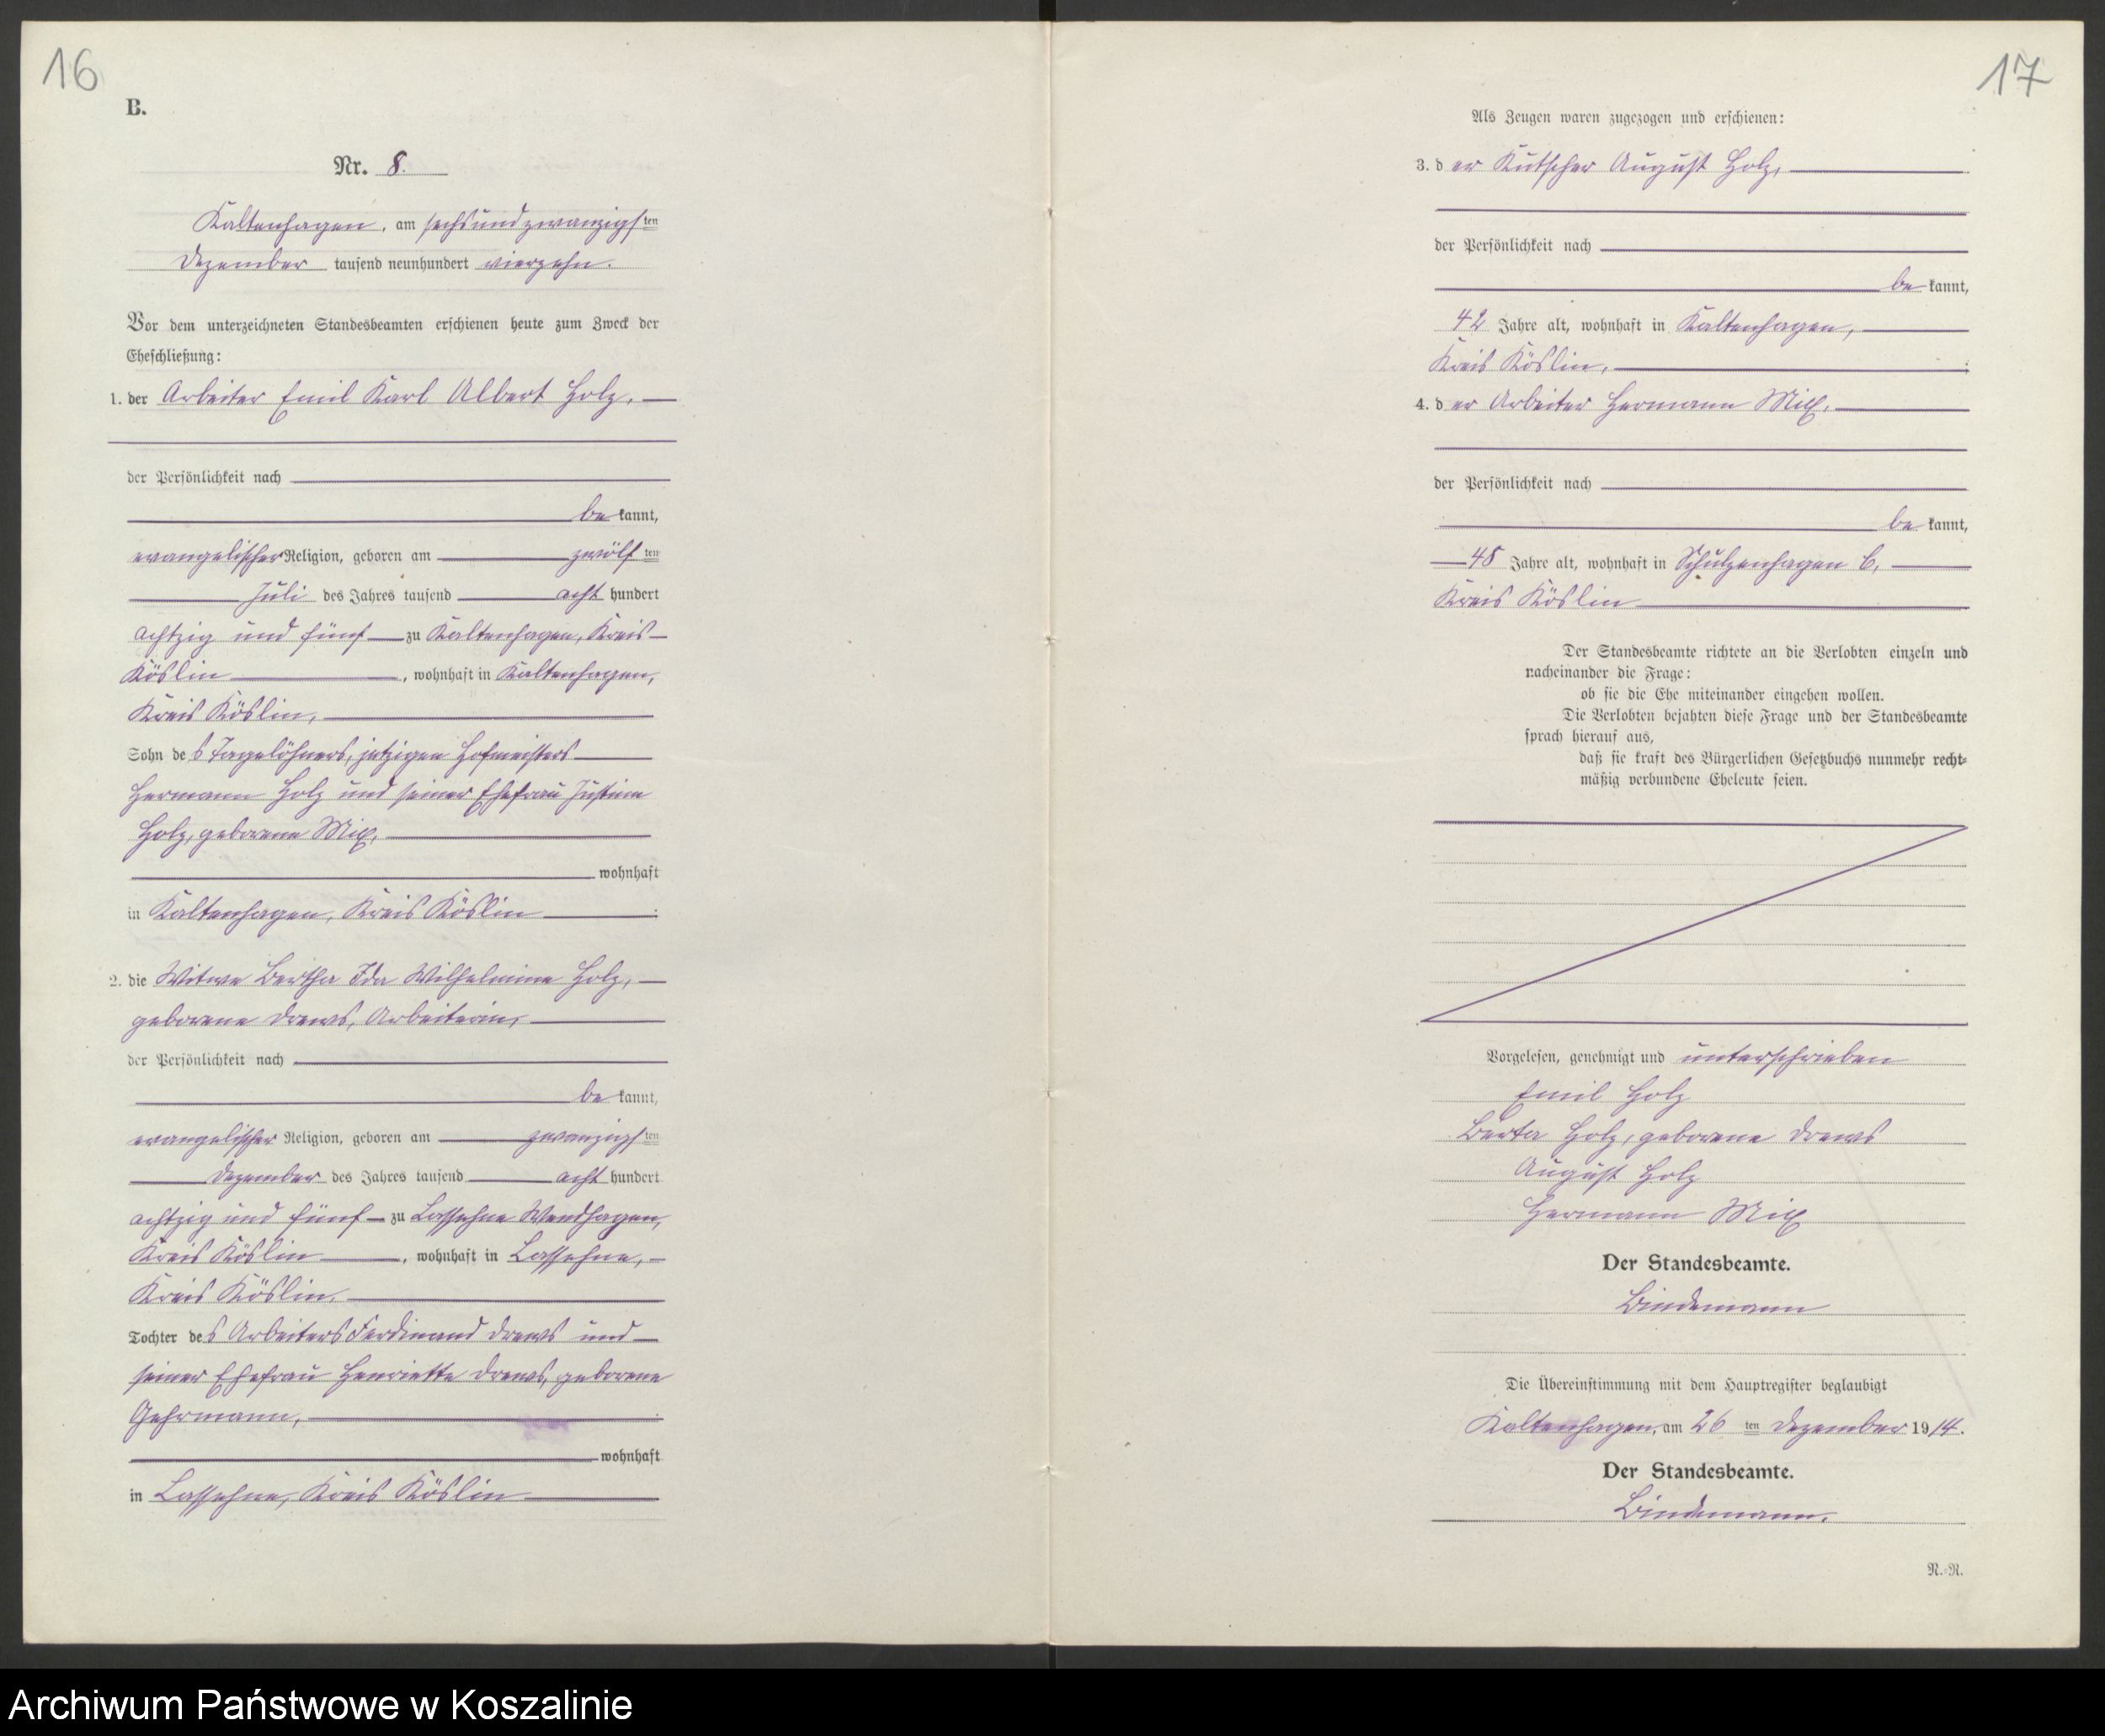 16
B.
Nr. 8.
Kaltenhagen, am sechsundzwanzigsten
Dezember tausend neunhundert vierzehn.
Vor dem unterzeichneten Standesbeamten erschienen heute zum Zweck der
Eheschließung:
1. der Arbeiter Emil Karl Albert Holz,
der Persönlichkeit nach
bekannt,
evangelischer Religion, geboren am zwölften
Juli des Jahres tausend acht hundert
achtzig und fünf zu Kaltenhagen, Kreis
Köslin, wohnhaft in Kaltenhagen,
Kreis Köslin,
Sohn des Tagelöhners, jetzigen Hofmeisters
Hermann Holz und seiner Ehefrau Justine
Holz, geborene Mix,
wohnhaft
in Kaltenhagen, Kreis Köslin;
2. die Witwe Bertha Ida Wilhelmine Holz,
geborene Drews, Arbeiterin,
der Persönlichkeit nach
bekannt,
evangelischer Religion, geboren am zwanzigsten
Dezember des Jahres tausend acht hundert
achtzig und fünf zu Lassehne Wendhagen,
Kreis Köslin, wohnhaft in Lassehne,
Kreis Köslin,
Tochter des Arbeiters Ferdinand Drews und
seiner Ehefrau Henriette Drews, geborene
Gehrmann,
wohnhaft
in Lassehne, Kreis Köslin
17
Als Zeugen waren zugezogen und erschienen:
3. der Kutscher August Holz,
der Persönlichkeit nach
bekannt,
42 Jahre alt, wohnhaft in Kaltenhagen,
Kreis Köslin,;
4. der Arbeiter Hermann Mix,
der Persönlichkeit nach
bekannt,
48 Jahre alt, wohnhaft in Schulzenhagen C,
Kreis Köslin
Der Standesbeamte richtete an die Verlobten einzeln und
nacheinander die Frage:
ob sie die Ehe miteinander eingehen wollen.
Die Verlobten bejahten diese Frage und der Standesbeamte
sprach hierauf aus,
daß sie kraft des Bürgerlichen Gesetzbuchs nunmehr recht-
mäßig verbundene Eheleute seien.
Vorgelesen, genehmigt und unterschrieben
Emil Holz
Berta Holz, geborene Drews
August Holz
Hermann Mix
Der Standesbeamte.
Bindemann
Die Übereinstimmung mit dem Hauptregister beglaubigt
Kaltenhagen, am 26 ten Dezember 1914.
Der Standesbeamte.
Bindemann.
N.-R.
Archiwum Państwowe w Koszalinie